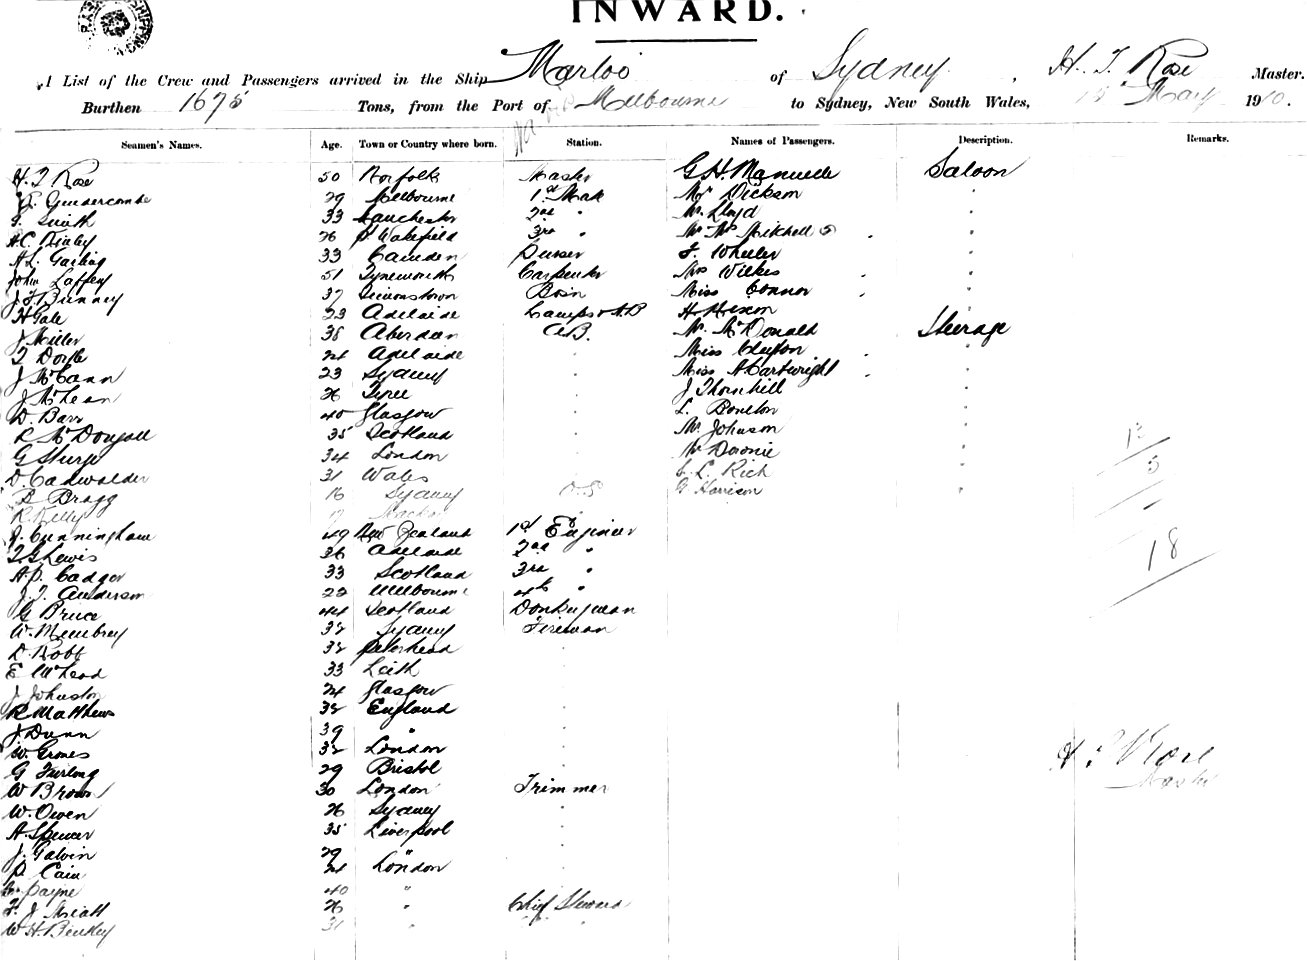 INWARD.
A List of the Crew and Passengers arrived in the Ship Marloo of Sydney, H. T. Rose Master.
Burthen 1675 Tons, from the Port of Melbourne to Sydney, New South Wales, May 1910.
Seamen's Names. Age. Town or Country where born. Station. Names of Passengers. Description. Remarks.
H. T. Rose 50 Norfolk Master G. H. Manuelle Saloon
29 Melbourne 1st Mate Mr Dickson "
Smith 33 Manchester 2nd " Mr Lloyd "
H. C. 26 P. Wakefield 3rd " Mr Mrs Mitchell "
H. L. Garling 33 Camden Purser F. Wheeler "
John Laffey 51 Tynemouth Carpenter Mrs Wilkes "
J. F. Bunney 37 Simonstown Bosn Miss Connor "
H Gale 23 Adelaide Lamps & AB H Hixon "
J. Miller 38 Aberdeen A.B. Mr McDonald Steerage
T Doyle 24 Adelaide " Miss Clayton "
J McCann 23 Sydney " Miss A Cartwright "
J. McLean 26 Tyree " J Thornhill "
D. Barr 40 Glasgow " L. "
R McDougall 35 Scotland " Mr Johnson "
G Sturge 34 London " Mr Downie "
D. Cadwalder 31 Wales " L. Rich "
B Bragg 16 Sydney O.S. G Harrison "
R. Kelly
J. Cunningham 49 New Zealand 1st Engineer
T. G Lewis 36 Adelaide 2nd "
A. P. Cadger 33 Scotland 3rd "
J. T. Anderson 22 Melbourne 4th "
G Bruce 44 Scotland Donkeyman
W. Membrey 32 Sydney Fireman
D. Robb 32 Peterhead "
E McLeod 33 Leith "
J Johnston 24 Glasgow "
R Matthews 32 England "
J Dunn 39 " "
W. Groves 32 London "
G Furlong 29 Bristol "
W Brown 30 London Trimmer
W. Owen 26 Sydney "
A. Spencer 35 Liverpool "
J. Galvin 29 " "
P Cain 24 London "
Payne 40 "
F. J. Miall 26 " Chief Steward
W. H. 31 " "
13
5
18
H. T. Rose
Master